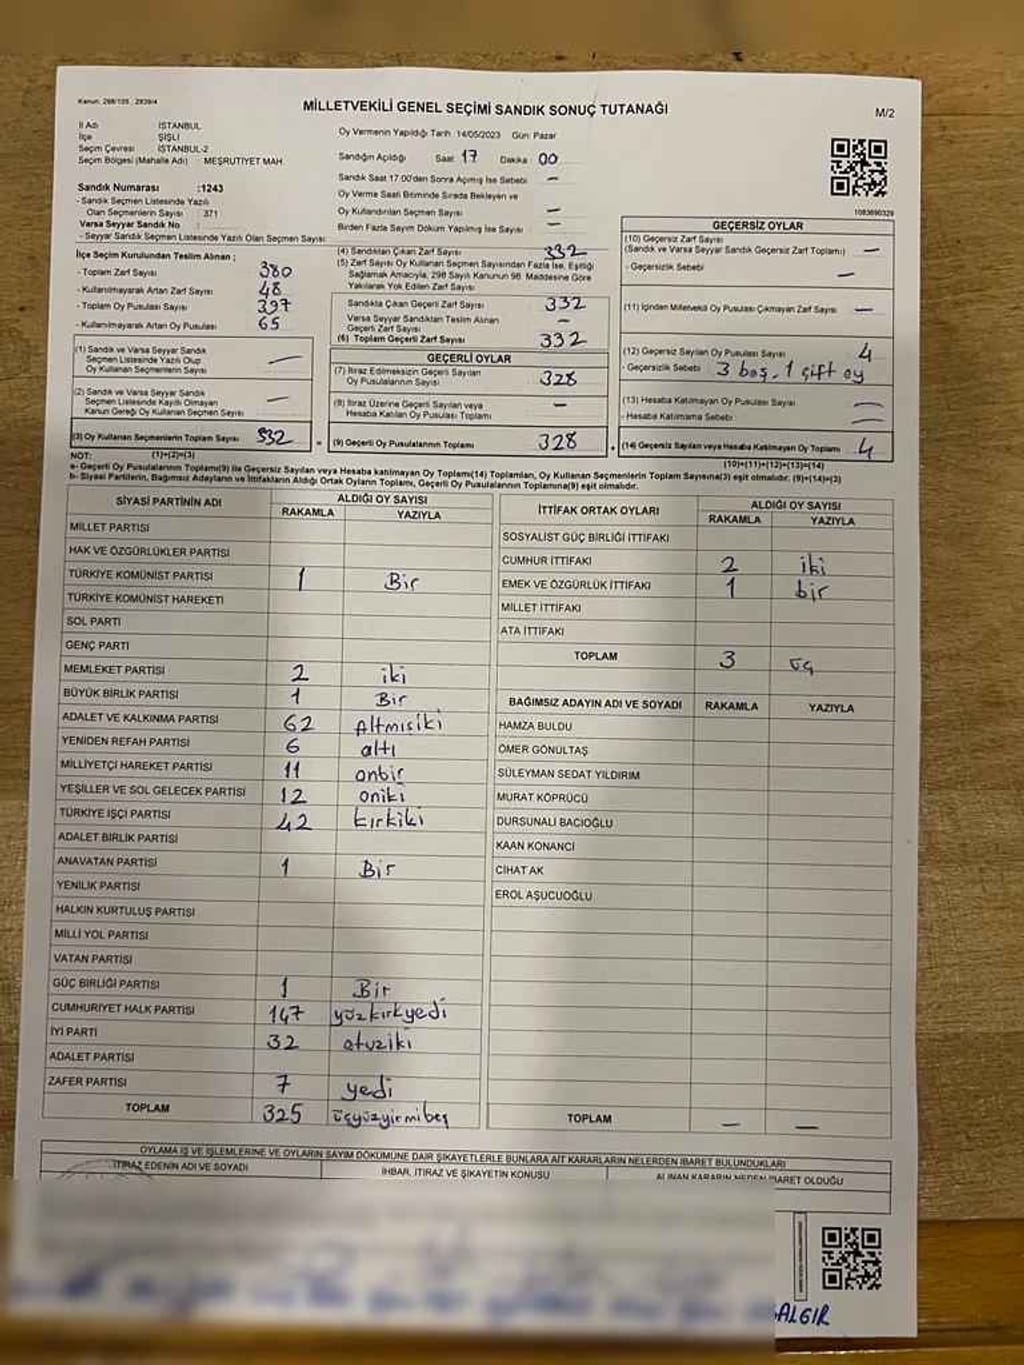 Kanun: 298/105 ; 2839/4
MİLLETVEKİLİ GENEL SEÇİMİ SANDIK SONUÇ TUTANAĞI
M/2
İl Adı İSTANBUL
İlçe ŞİŞLİ
Seçim Çevresi İSTANBUL-2
Seçim Bölgesi (Mahalle Adı) : MEŞRUTİYET MAH.
Oy Vermenin Yapıldığı Tarih : 14/05/2023 Gün: Pazar
Sandığın Açıldığı Saat: 17 Dakika : 00
Sandık Saat 17.00'den Sonra Açılmış İse Sebebi : —
Oy Verme Saati Bitiminde Sırada Bekleyen ve
Oy Kullandırılan Seçmen Sayısı —
Birden Fazla Sayım Döküm Yapılmış İse Sayısı —
1083690329
Sandık Numarası :1243
- Sandık Seçmen Listesinde Yazılı
Olan Seçmenlerin Sayısı : 371
Varsa Seyyar Sandık No :
- Seyyar Sandık Seçmen Listesinde Yazılı Olan Seçmen Sayısı:
İlçe Seçim Kurulundan Teslim Alınan ;
- Toplam Zarf Sayısı 380
- Kullanılmayarak Artan Zarf Sayısı 48
- Toplam Oy Pusulası Sayısı 397
- Kullanılmayarak Artan Oy Pusulası 65
(1) Sandık ve Varsa Seyyar Sandık
Seçmen Listesinde Yazılı Olup
Oy Kullanan Seçmenlerin Sayısı —
(2) Sandık ve Varsa Seyyar Sandık
Seçmen Listesinde Kayıtlı Olmayan
Kanun Gereği Oy Kullanan Seçmen Sayısı —
(3) Oy Kullanan Seçmenlerin Toplam Sayısı 332
(4) Sandıktan Çıkan Zarf Sayısı 332
(5) Zarf Sayısı Oy Kullanan Seçmen Sayısından Fazla İse, Eşitliği
Sağlamak Amacıyla, 298 Sayılı Kanunun 98. Maddesine Göre
Yakılarak Yok Edilen Zarf Sayısı:
Sandıkta Çıkan Geçerli Zarf Sayısı 332
Varsa Seyyar Sandıktan Teslim Alınan
Geçerli Zarf Sayısı —
(6) Toplam Geçerli Zarf Sayısı 332
GEÇERLİ OYLAR
(7) İtiraz Edilmeksizin Geçerli Sayılan
Oy Pusulalarının Sayısı 328
(8) İtiraz Üzerine Geçerli Sayılan veya
Hesaba Katılan Oy Pusulası Toplamı —
= (9) Geçerli Oy Pusulalarının Toplamı 328
GEÇERSİZ OYLAR
(10) Geçersiz Zarf Sayısı
(Sandık ve Varsa Seyyar Sandık Geçersiz Zarf Toplamı) —
- Geçersizlik Sebebi —
(11) İçinden Milletvekili Oy Pusulası Çıkmayan Zarf Sayısı —
(12) Geçersiz Sayılan Oy Pusulası Sayısı 4
- Geçersizlik Sebebi 3 boş, 1 çift oy
(13) Hesaba Katılmayan Oy Pusulası Sayısı —
- Hesaba Katılmama Sebebi —
+ (14) Geçersiz Sayılan veya Hesaba Katılmayan Oy Toplamı 4
NOT: (1)+(2)=(3) (10)+(11)+(12)+(13)=(14)
a- Geçerli Oy Pusulalarının Toplamı(9) ile Geçersiz Sayılan veya Hesaba katılmayan Oy Toplamı(14) Toplamları, Oy Kullanan Seçmenlerin Toplam Sayısına(3) eşit olmalıdır. (9)+(14)=(3)
b- Siyasi Partilerin, Bağımsız Adayların ve İttifakların Aldığı Ortak Oyların Toplamı, Geçerli Oy Pusulalarının Toplamına(9) eşit olmalıdır.
SİYASİ PARTİNİN ADI ALDIĞI OY SAYISI
RAKAMLA YAZIYLA
MİLLET PARTİSİ
HAK VE ÖZGÜRLÜKLER PARTİSİ
TÜRKİYE KOMÜNİST PARTİSİ 1 Bir
TÜRKİYE KOMÜNİST HAREKETİ
SOL PARTİ
GENÇ PARTİ
MEMLEKET PARTİSİ 2 iki
BÜYÜK BİRLİK PARTİSİ 1 Bir
ADALET VE KALKINMA PARTİSİ 62 Altmısiki
YENİDEN REFAH PARTİSİ 6 altı
MİLLİYETÇİ HAREKET PARTİSİ 11 onbir
YEŞİLLER VE SOL GELECEK PARTİSİ 12 oniki
TÜRKİYE İŞÇİ PARTİSİ 42 kırkiki
ADALET BİRLİK PARTİSİ
ANAVATAN PARTİSİ 1 Bir
YENİLİK PARTİSİ
HALKIN KURTULUŞ PARTİSİ
MİLLİ YOL PARTİSİ
VATAN PARTİSİ
GÜÇ BİRLİĞİ PARTİSİ 1 Bir
CUMHURİYET HALK PARTİSİ 147 yüzkırkyedi
İYİ PARTİ 32 otuziki
ADALET PARTİSİ
ZAFER PARTİSİ 7 yedi
TOPLAM 325 üçyüzyirmibeş
İTTİFAK ORTAK OYLARI ALDIĞI OY SAYISI
RAKAMLA YAZIYLA
SOSYALİST GÜÇ BİRLİĞİ İTTİFAKI
CUMHUR İTTİFAKI 2 iki
EMEK VE ÖZGÜRLÜK İTTİFAKI 1 bir
MİLLET İTTİFAKI
ATA İTTİFAKI
TOPLAM 3 üç
BAĞIMSIZ ADAYIN ADI VE SOYADI RAKAMLA YAZIYLA
HAMZA BULDU
ÖMER GÖNÜLTAŞ
SÜLEYMAN SEDAT YILDIRIM
MURAT KÖPRÜCÜ
DURSUNALİ BACIOĞLU
KAAN KONANCİ
CİHAT AK
EROL AŞUCUOĞLU
TOPLAM — —
OYLAMA İŞ VE İŞLEMLERİNE VE OYLARIN SAYIM DÖKÜMÜNE DAİR ŞİKAYETLERLE BUNLARA AİT KARARLARIN NELERDEN İBARET BULUNDUKLARI
İTİRAZ EDENİN ADI VE SOYADI İHBAR, İTİRAZ VE ŞİKAYETİN KONUSU ALINAN KARARIN NEDEN İBARET OLDUĞU